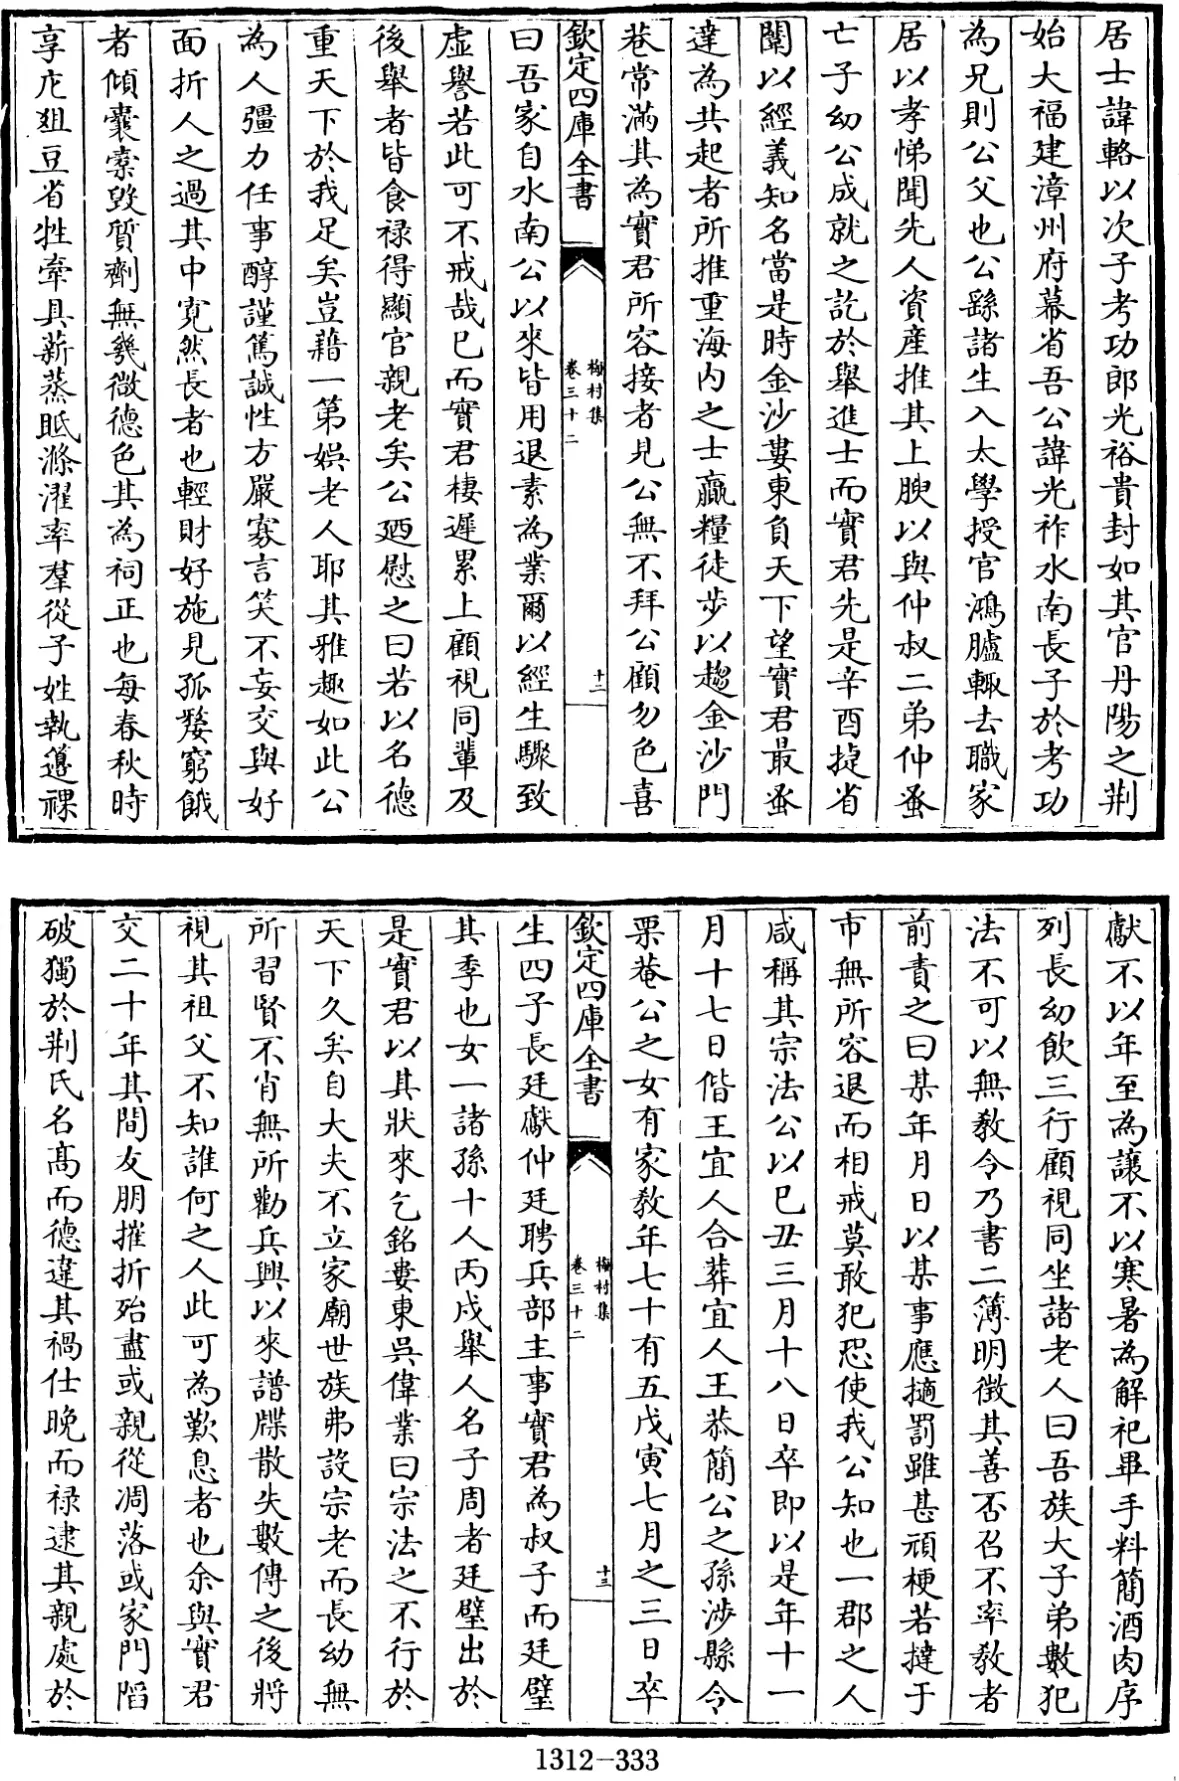 居士諱輅以次子考功郎光裕貴封如其官丹陽之荆
始大福建漳州府幕省吾公諱光祚水南長子於考功
為兄則公父也公繇諸生入太學授官鴻臚輙去職家
居以孝悌聞先人資產推其上腴以與仲叔二弟仲蚤
亡子幼公成就之訖於舉進士而實君先是辛酉㨗省
闈以經義知名當是時金沙婁東負天下望實君最蚤
達為共起者所推重海内之士贏糧徒步以趨金沙門
巷常滿其為實君所容接者見公無不拜公顧勿色喜
欽定四庫全書
梅村集
卷三十二
十二
曰吾家自水南公以來皆用退素為業爾以經生驟致
虛譽若此可不戒哉已而實君棲遲累上顧視同輩及
後舉者皆食禄得顯官親老矣公廼慰之曰若以名德
重天下於我足矣豈藉一第娯老人耶其雅趣如此公
為人彊力任事醇謹篤誠性方嚴寡言笑不妄交與好
面折人之過其中寛然長者也輕財好施見孤嫠窮餓
者傾囊槖毁質劑無㡬微德色其為祠正也每春秋時
享庀爼豆省牲牽具薪蒸眡滌濯率羣從子姓執籩祼
獻不以年至為讓不以寒暑為解祀畢手料簡酒肉序
列長幼飲三行顧視同坐諸老人曰吾族大子弟數犯
法不可以無教令乃書二簿明徴其善否召不率教者
前責之曰某年月日以某事應擿罰雖甚頑梗若撻于
市無所容退而相戒莫敢犯恐使我公知也一郡之人
咸稱其宗法公以己丑三月十八日卒即以是年十一
月十七日偕王宜人合葬宜人王恭簡公之孫涉縣令
栗菴公之女有家教年七十有五戊寅七月之三日卒
欽定四庫全書
梅村集
卷三十二
十三
生四子長廷獻仲廷聘兵部主事實君為叔子而廷璧
其季也女一諸孫十人丙戍舉人名子周者廷璧出於
是實君以其狀來乞銘婁東吳偉業曰宗法之不行於
天下久矣自大夫不立家廟世族弗設宗老而長幼無
所習賢不肖無所勸兵興以來譜牒散失數傳之後將
視其祖父不知誰何之人此可為歎息者也余與實君
交二十年其間友朋摧折殆盡或親從凋落或家門䧟
破獨於荆氏名高而德違其禍仕晚而禄逮其親處於
1312-333